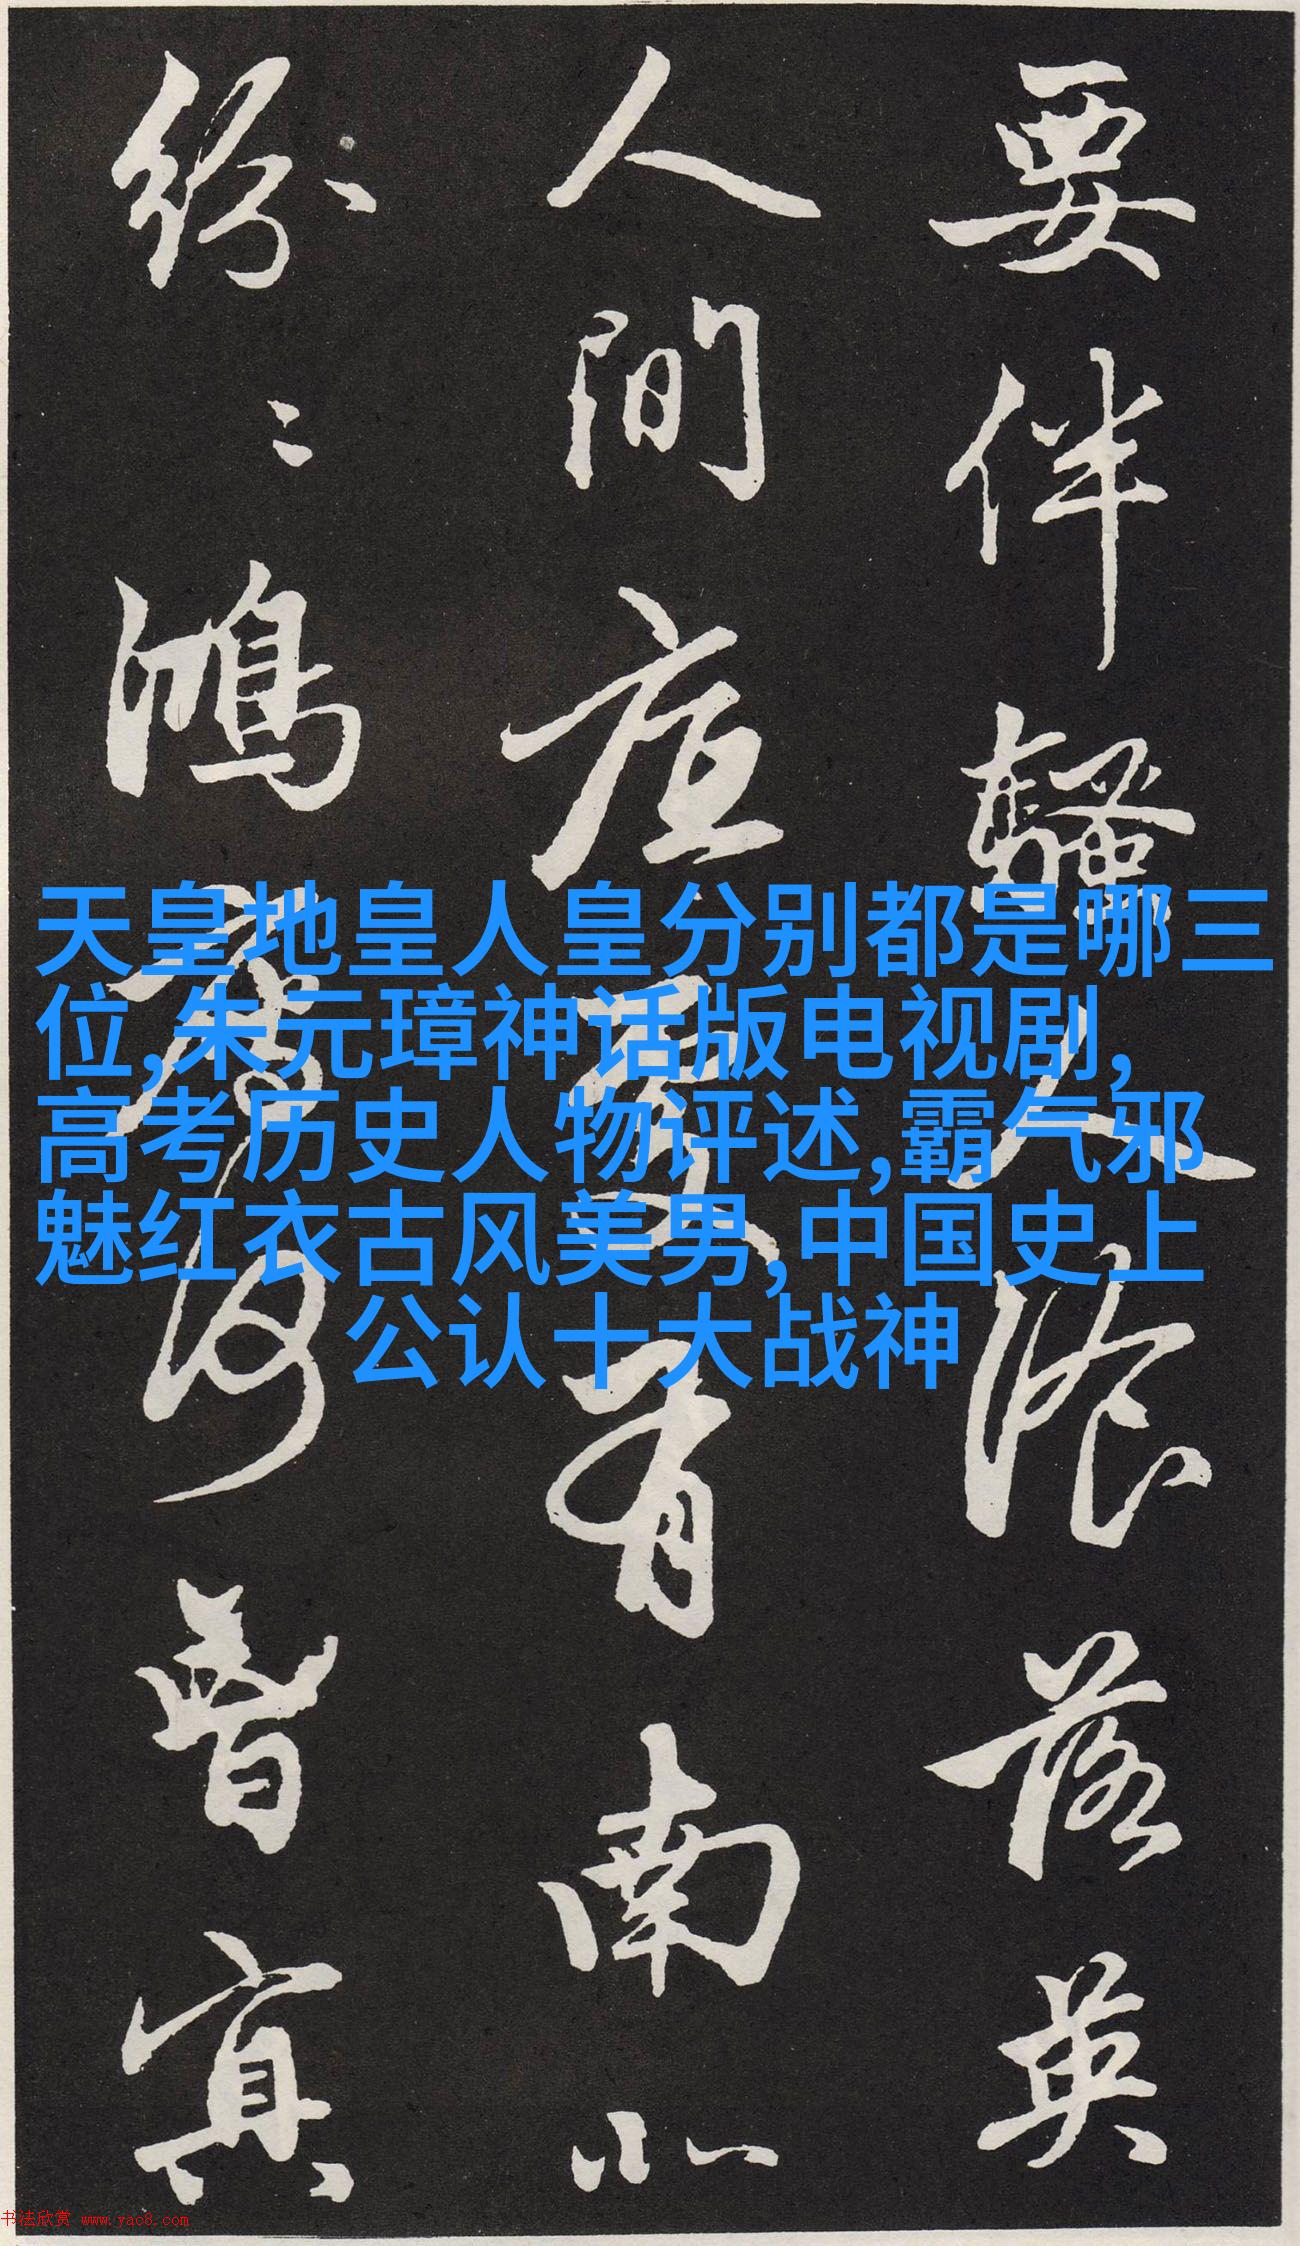 要伴騷人湌落英
人間底處有南北
紛〻鴻雁何曾冥
天皇地皇人皇分别都是哪三
位,朱元璋神话版电视剧,
高考历史人物评述,霸气邪
魅红衣古风美男,中国史上
公认十大战神
书法欣赏 www.yac8.com